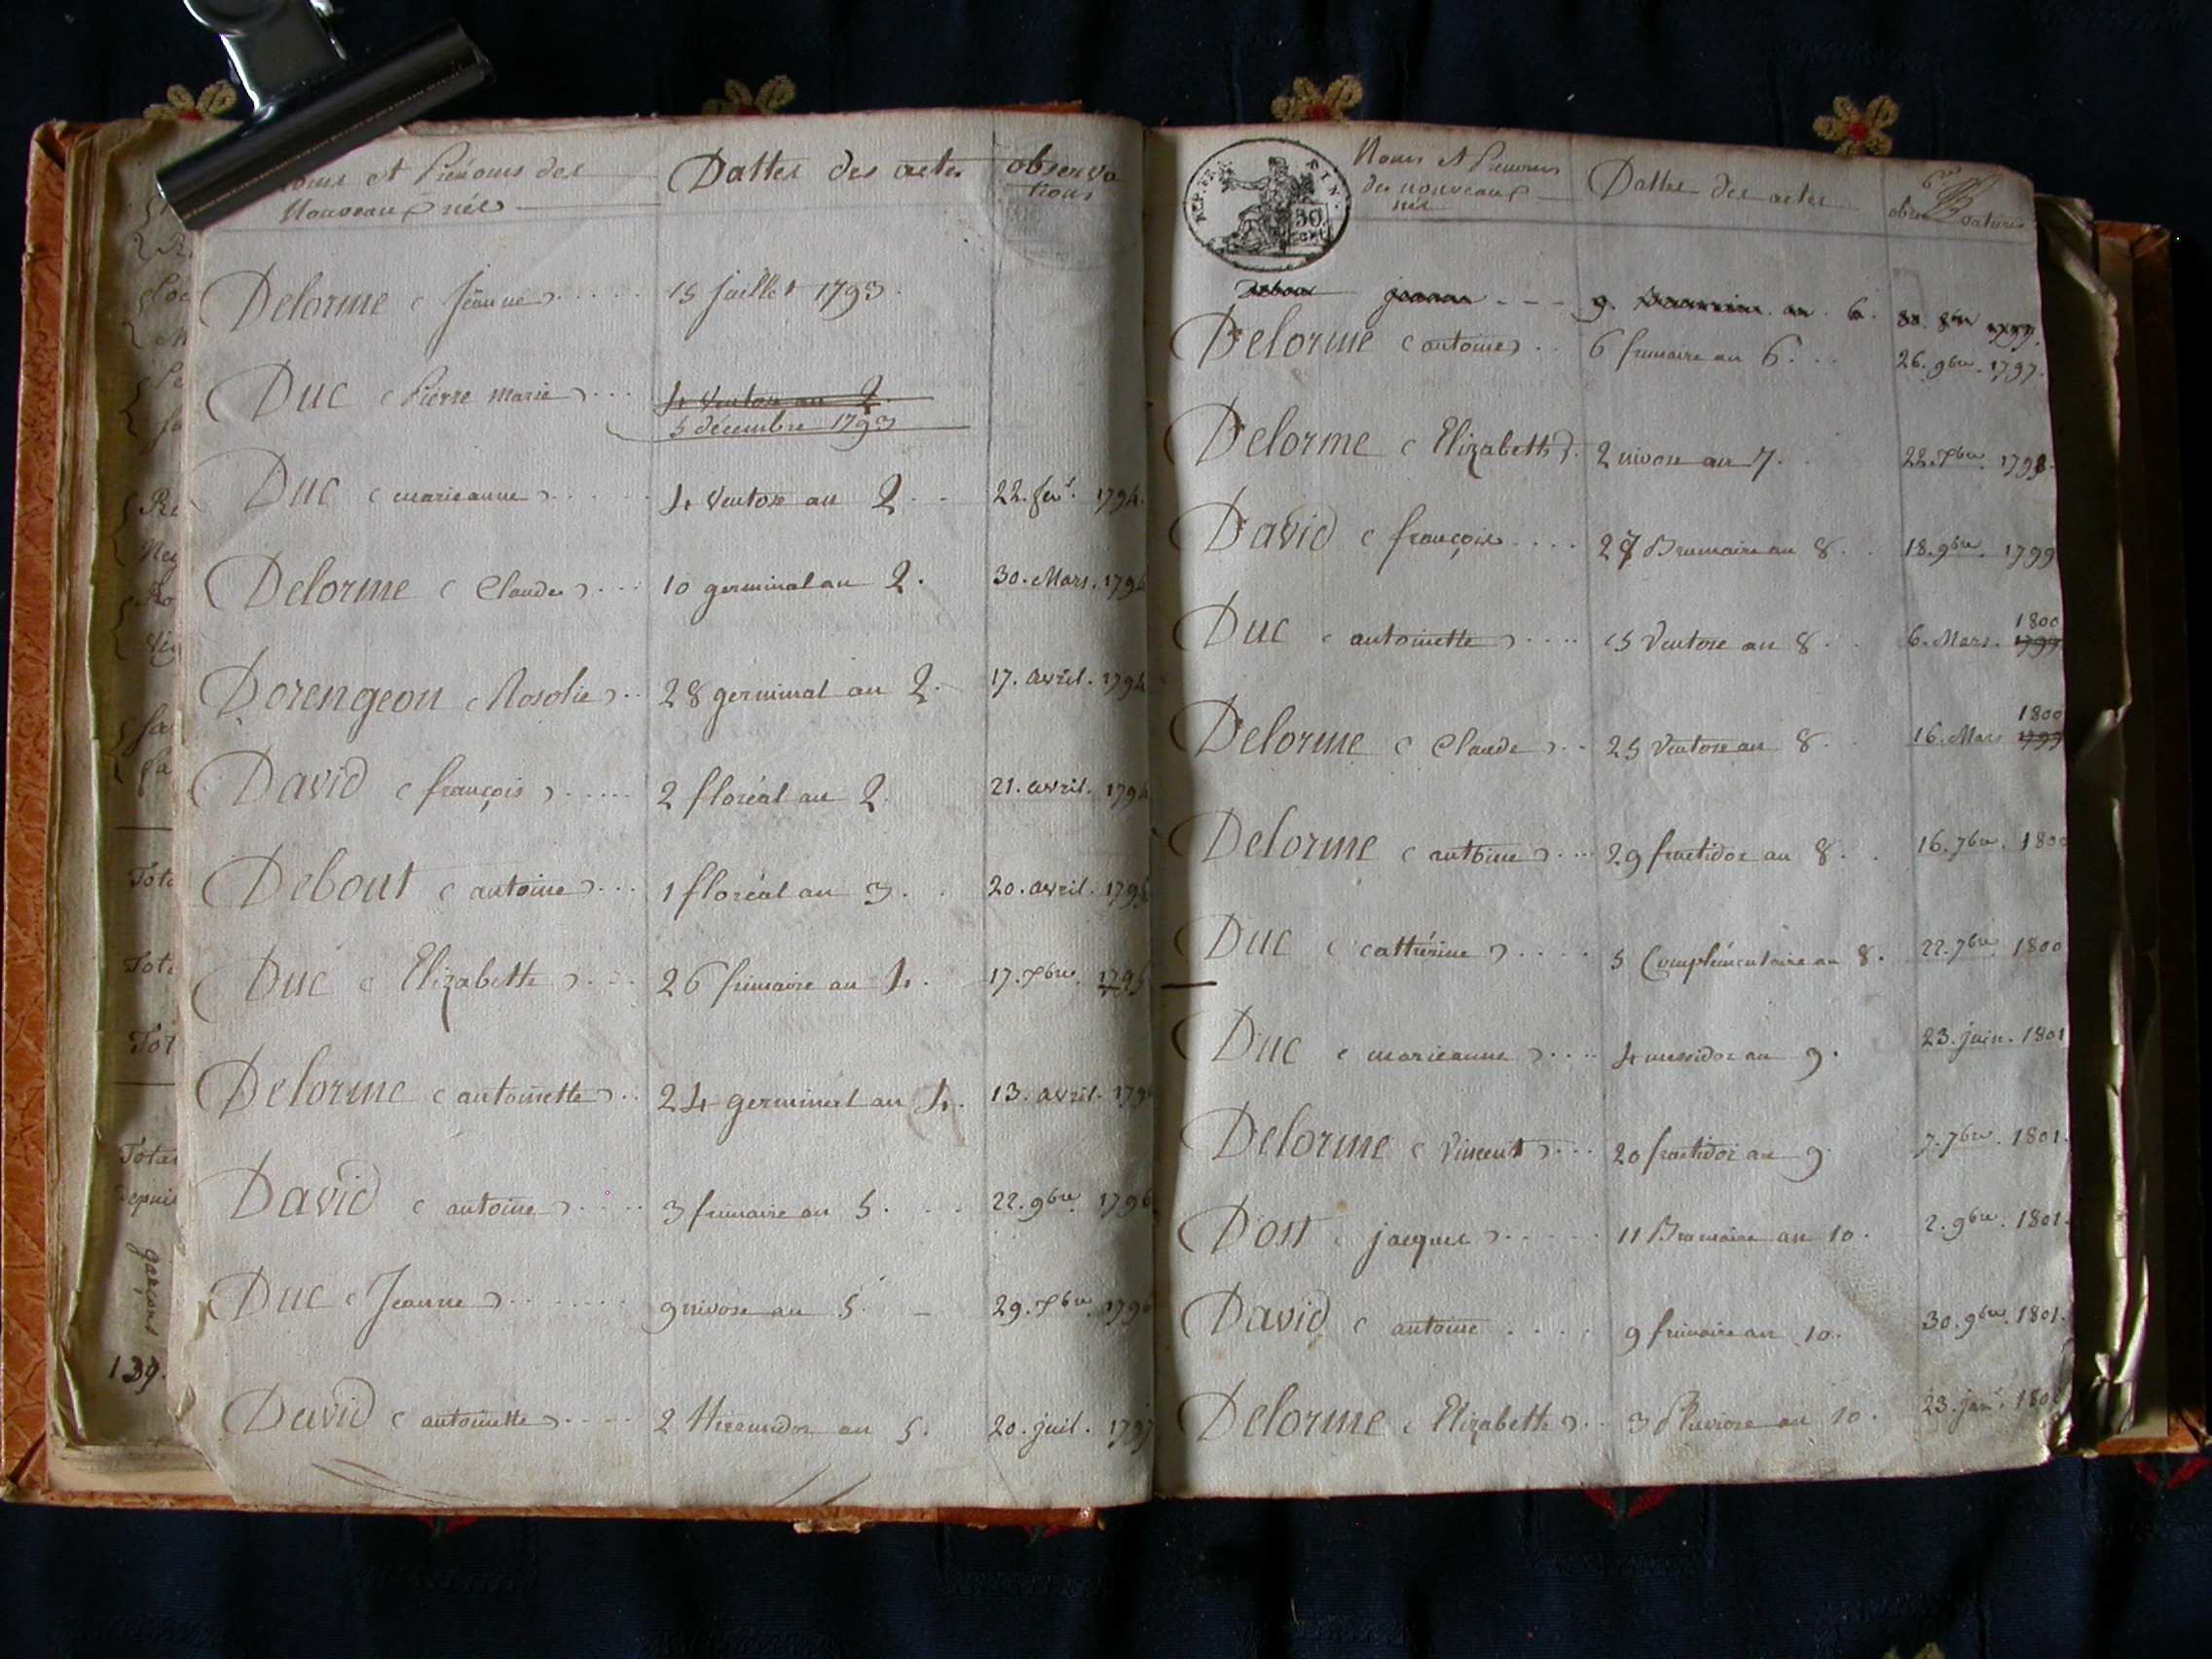 Noms et Prénoms des
Nouveaux nés
Dattes des actes
observa
tions
Delorme (Jeanne) ..... 15 juillet 1793.
Duc (Pierre marie) ... 4 Ventose an 2.
5 décembre 1793
Duc (marieanne) ..... 4 Ventose an 2 .. 22. fer. 1794.
Delorme (Claude) ... 10 germinal an 2. 30. Mars. 1794
Dorengeon (Rosolie) .. 28 germinal an 2. 17. avril. 1794
David (françois) ..... 2 floréal an 2. 21. avril. 1794
Debout (antoine) ... 1 floréal an 3. 20. avril. 1795
Duc (Elizabette) ... 26 frimaire an 4. 17. Xbre. 1795
Delorme (antoinette) .. 24 germinal an 4. 13. avril. 179
David (antoine) .... 3 frimaire an 5. .. 22. 9bre. 1796
Duc (Jeanne) ....... 9 nivose an 5. - 29. Xbre. 1796
David (antoinette) .... 2 thermidor an 5. 20. juil. 1797
Tot
Tot
Tot
Total
depuis
garçons
139.
50
Noms et Prenoms
des nouveaux
nés
Dattes des actes
obser vations
Debout Jeanne - - - 9. an 6.
Delorme (antoine) .. 6 frimaire an 6... 26. 9bre. 1797.
Delorme (Elizabeth). 2 nivose an 7. . 22. Xbre. 1798.
David (françois .... 27 Brumaire an 8. . 18. 9bre. 1799
Duc (antoinette) .... 15 Ventose an 8. . 6. Mars. 1799 1800
Delorme (Claude) .. 25 Ventose an 8. . 16. Mars 1799 1800
Delorme (antoine) ... 29 fructidor an 8. . 16. 7bre. 1800
Duc (cattherine) .... 5 Complémentaire an 8. 22. 7bre. 1800
Duc (marieanne) .... 4 messidor an 9. 23. juin. 1801
Delorme (Vincent) ... 20 fructidor an 9 7. 7bre. 1801.
Dost (jacques) ..... 11 Brumaire an 10. 2. 9bre. 1801.
David (antoine .... 9 frimaire an 10. 30. 9bre. 1801.
Delorme (Elizabette) .. 3 Pluviose an 10. 23. janr. 1802